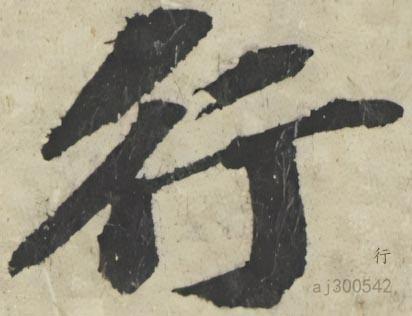 行
行
aj300542